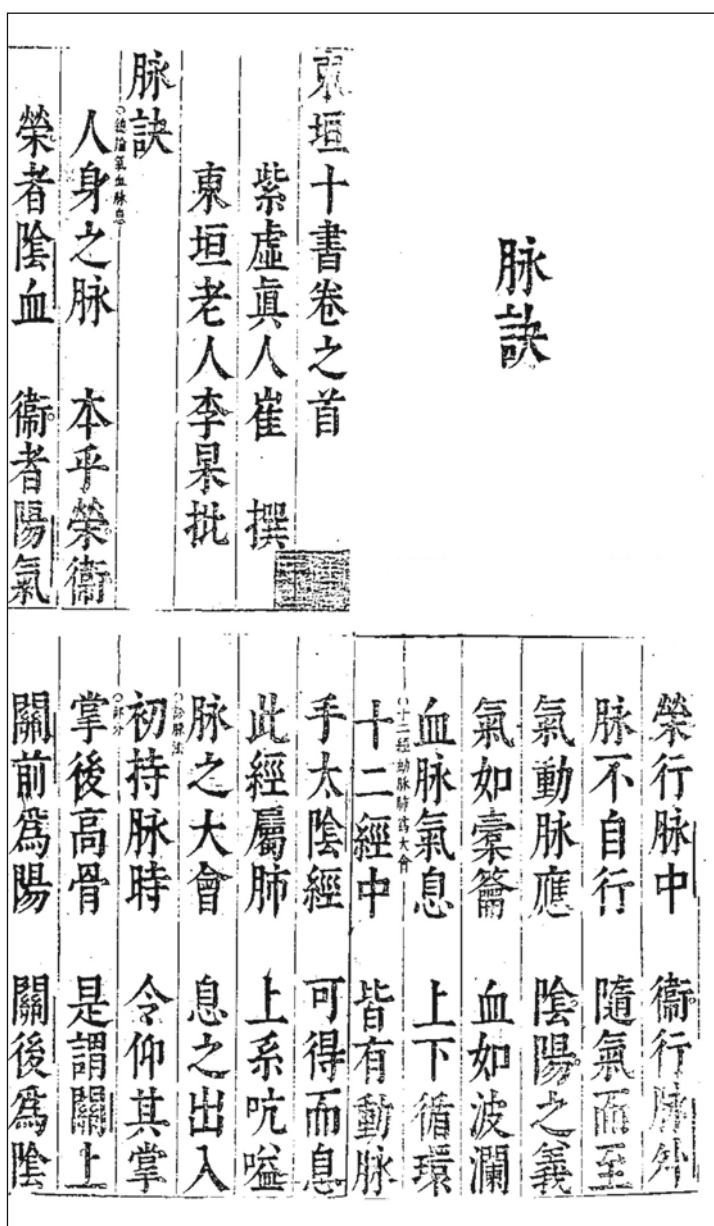 脉訣
東垣十書卷之首
紫虛眞人崔 撰
東垣老人李杲批
脉訣
○總論氣血脉息
人身之脉 本乎榮衞
榮者陰血 衞者陽氣
榮行脉中 衞行脉外
脉不自行 隨氣而至
氣動脉應 陰陽之義
氣如橐籥 血如波瀾
血脉氣息 上下循環
○十二經動脉肺爲大會
十二經中 皆有動脉
手太陰經 可得而息
此經屬肺 上系吭嗌
脉之大會 息之出入
○診脉法
初持脉時 令仰其掌
○部分
掌後高骨 是謂關上
關前爲陽 關後爲陰